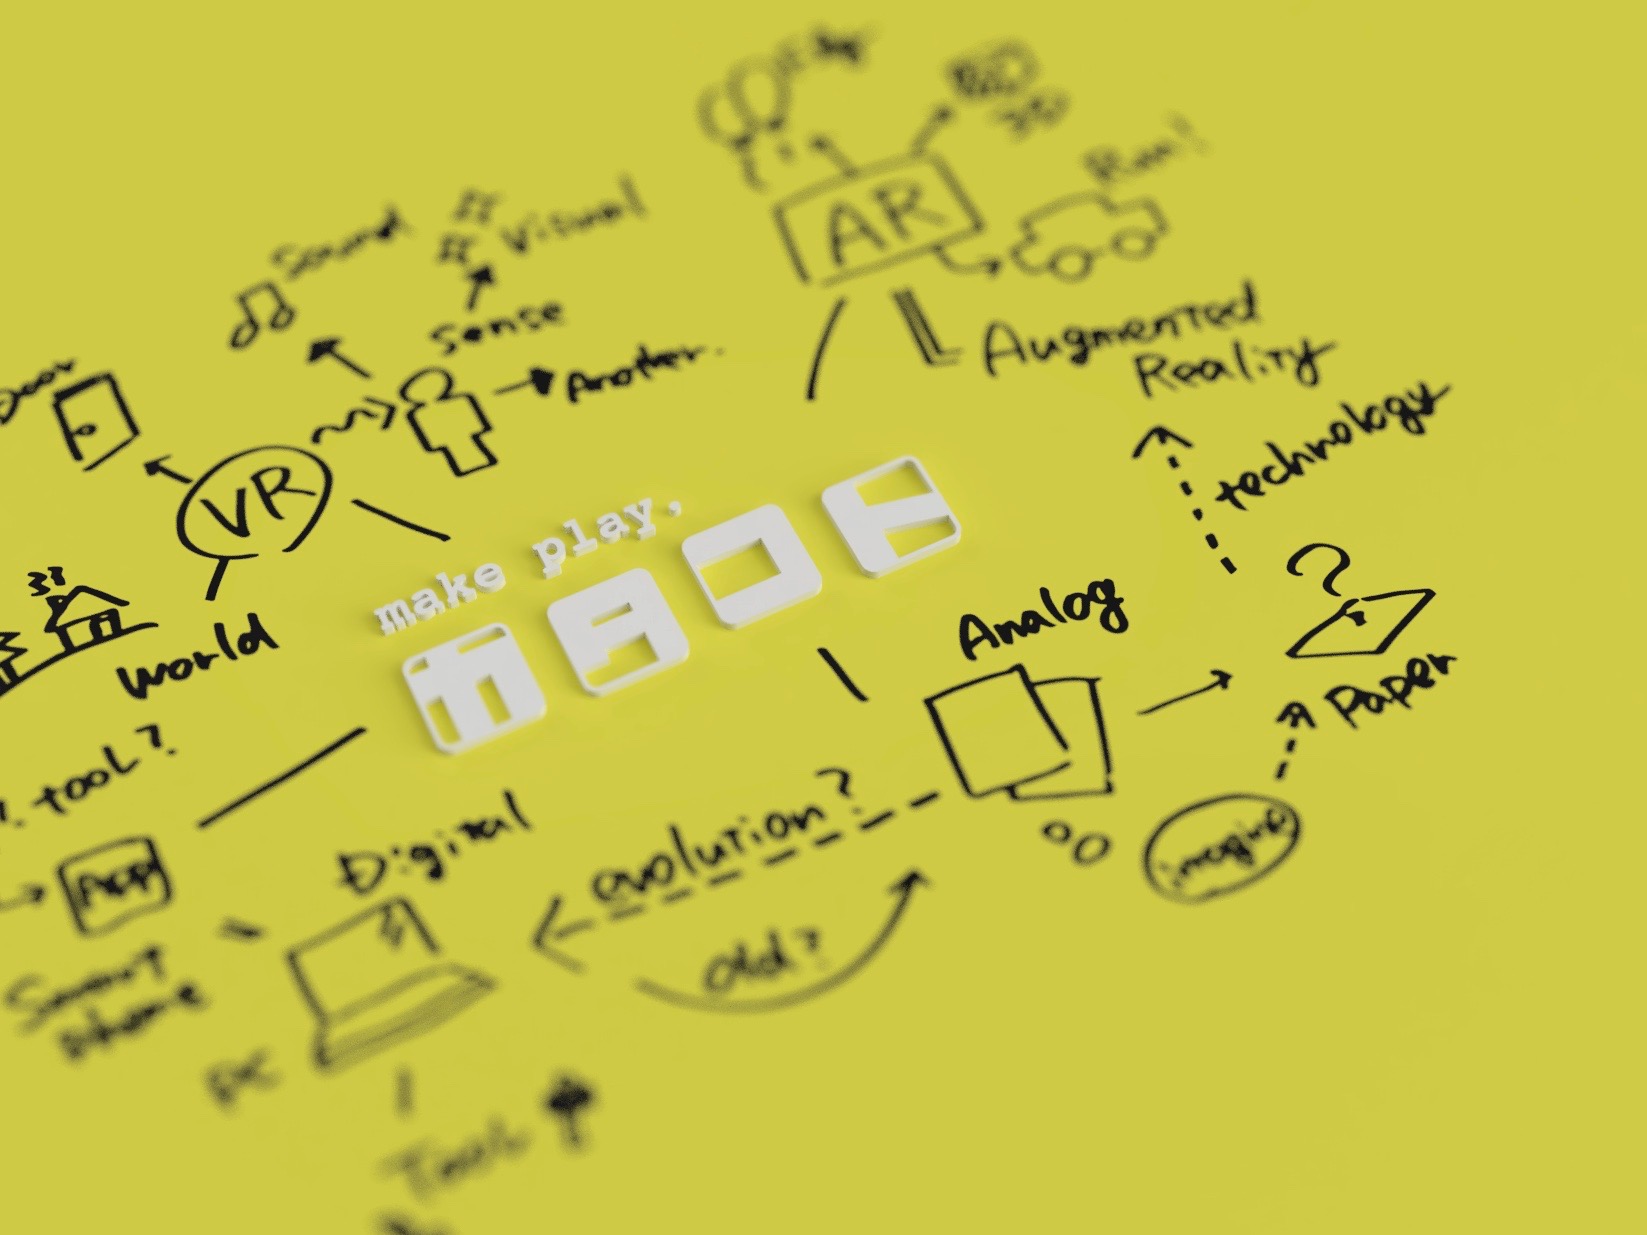 AR
Run!
Augmented
Reality
technology
Sound
Visual
Sense
Another.
Door
VR
World
make play.
Analog
Paper
imagine
evolution?
old?
Digital
? tool?
App
Smart
Phone
PC